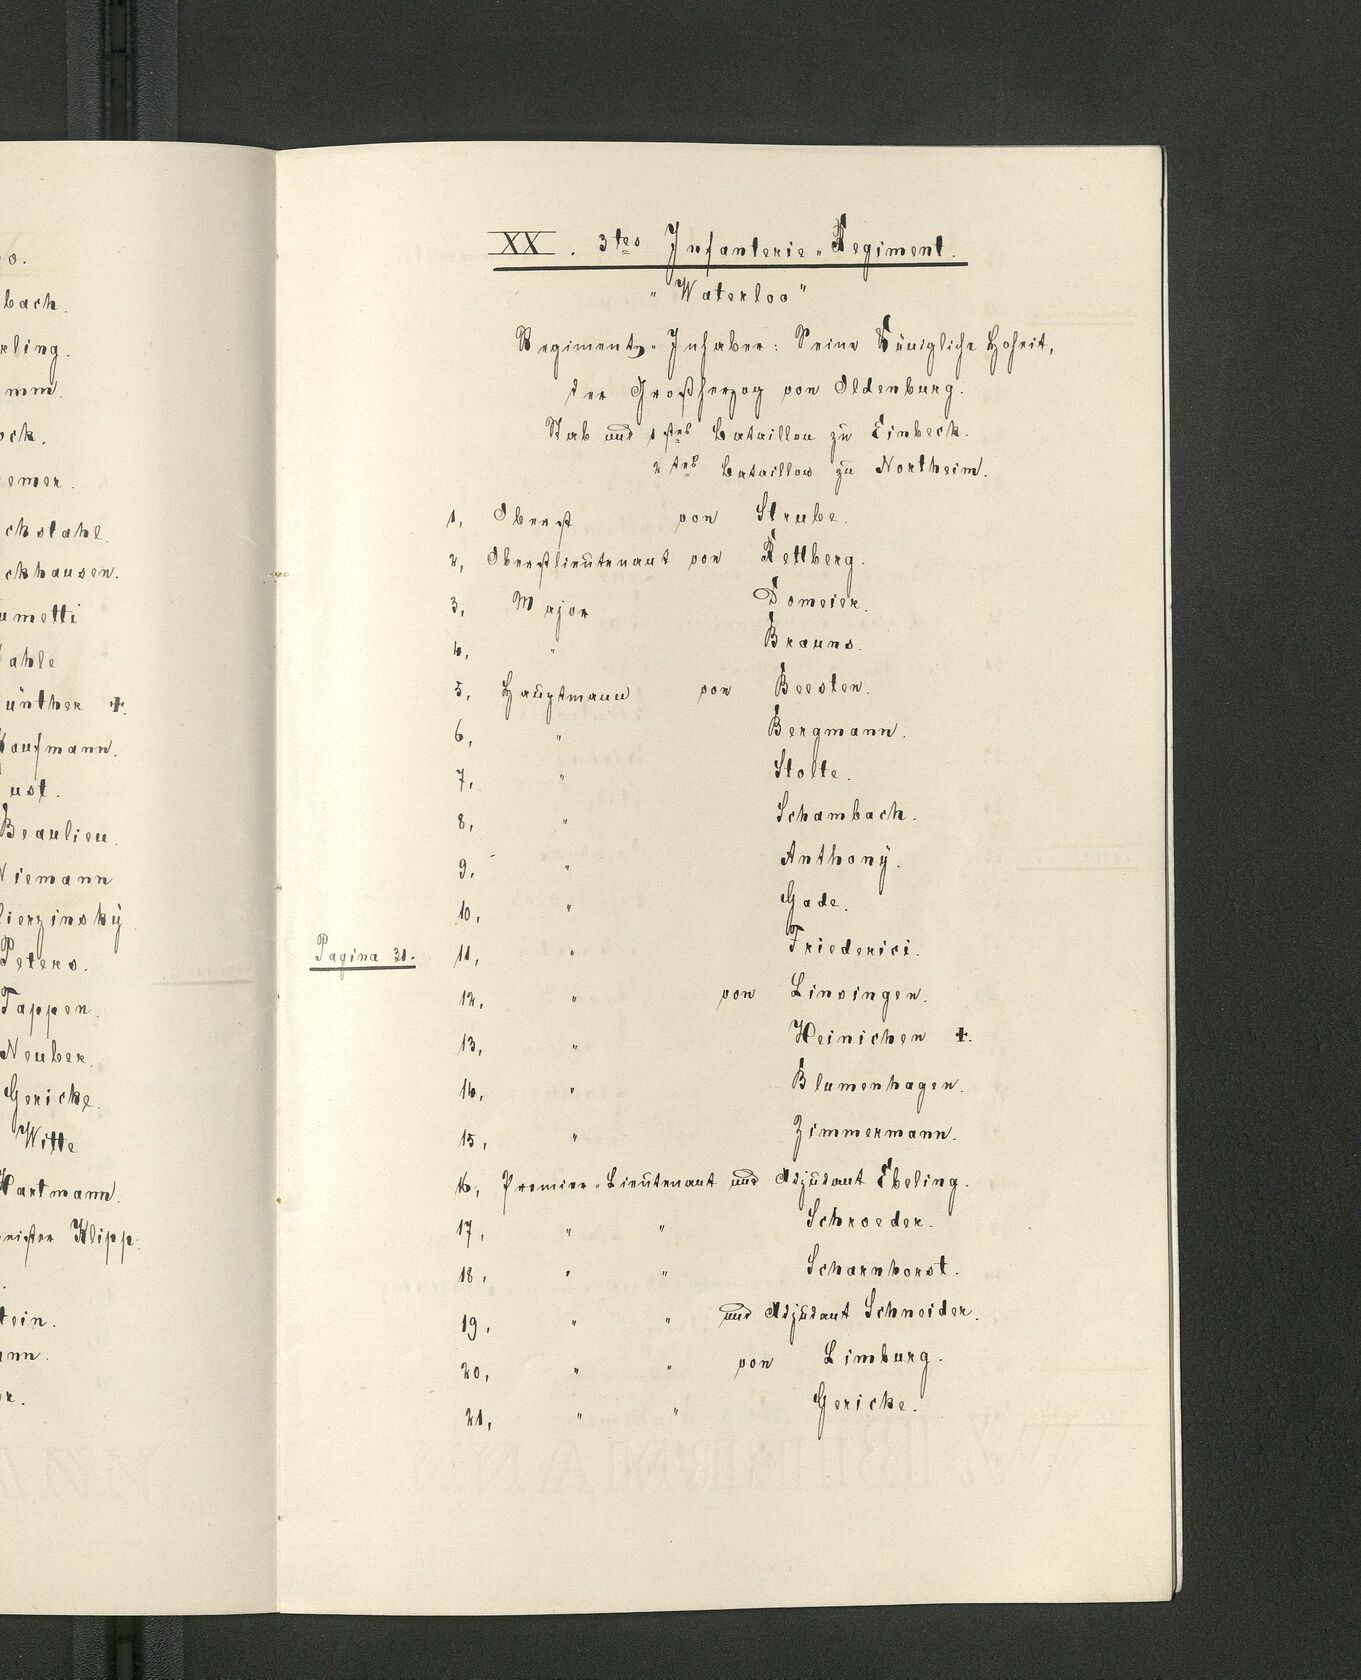 o.
bach.
rling.
mm.
ock.
emer.
ckstahl.
ckhausen.
umetti
ahle
ünther +.
Kaufmann.
ust.
Beaulieu.
Niemann
lierzinsky
Peters.
Tappen.
Neuber.
Gericke.
Witte
Hartmann.
meister Klipp.
tein.
ann.
r.
XX. 3tes Infanterie-Regiment.
"Waterloo"
Regiments-Inhaber: Seine Königliche Hoheit,
der Großherzog von Oldenburg.
Stab und 1stes Bataillon zu Einbeck.
2tes Bataillon zu Northeim.
1, Oberst von Strube.
2, Oberstlieutenant von Rettberg.
3, Major Domeier.
4, " Brauns.
5, Hauptmann von Beesten.
6, " Bergmann.
7, " Stolte.
8, " Schambach.
9, " Anthony.
10, " Gade.
Pagina 31. 11, " Friederici.
12, " von Linsingen.
13, " Heinichen +.
14, " Blumenhagen.
15, " Zimmermann.
16, Premier-Lieutenant und Adjudant Ebeling.
17, " " Schroeder.
18, " " Scharnhorst.
19, " " und Adjudant Schneider.
20, " " von Limburg.
21, " " Gericke.